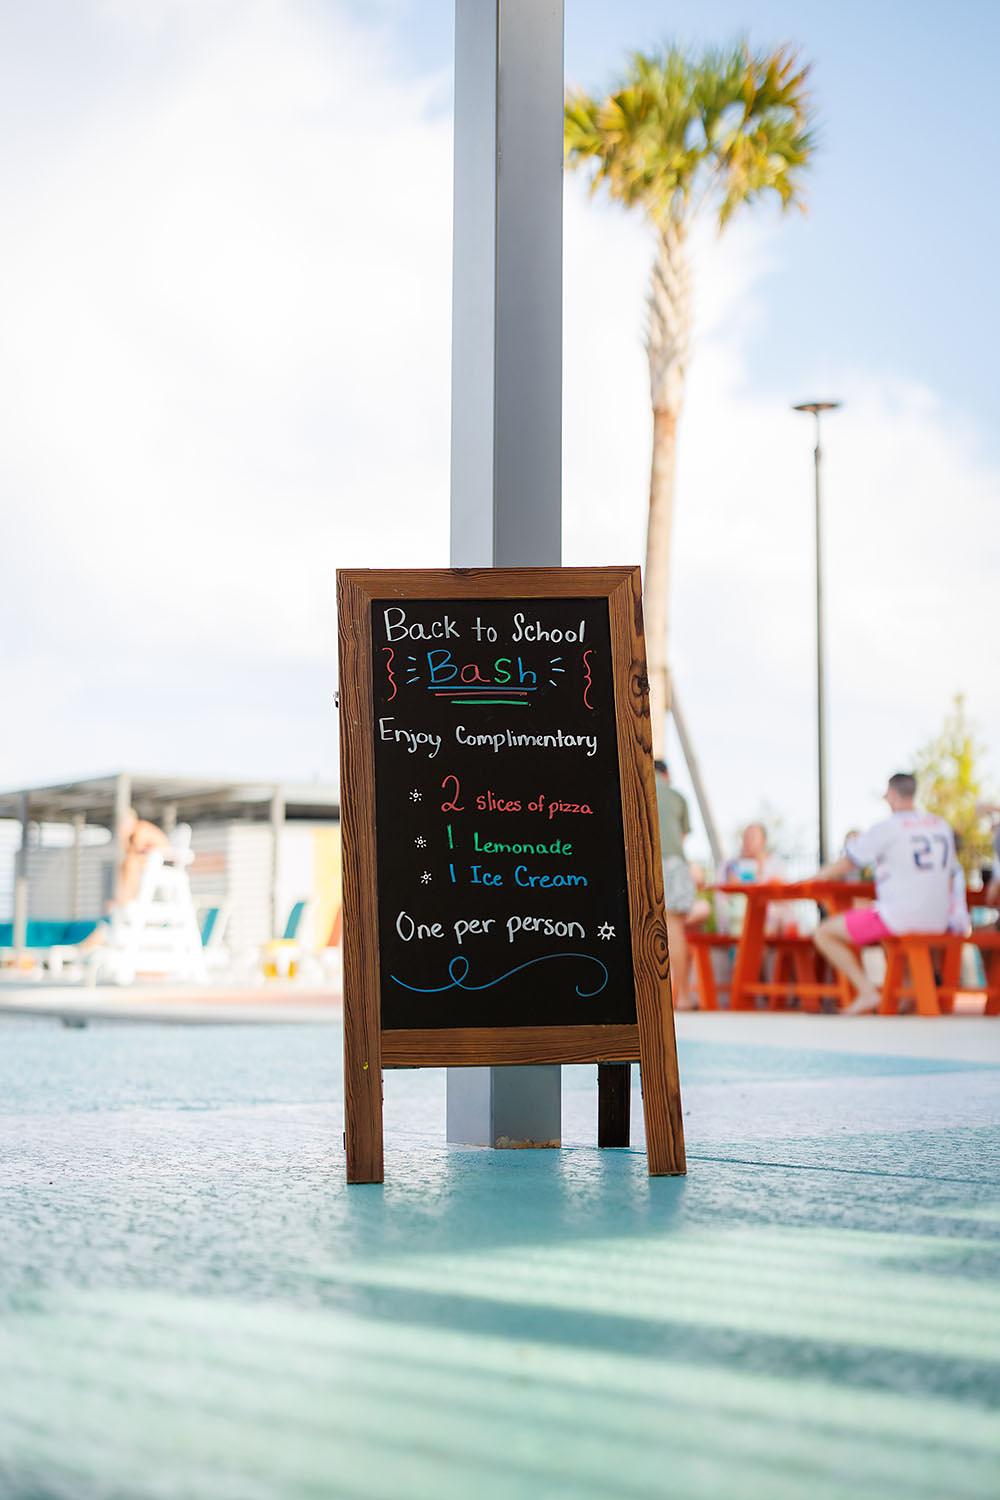 Back to School
Bash
Enjoy Complimentary
2 slices of pizza
1 Lemonade
1 Ice Cream
One per person
27